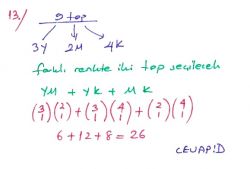 13/ 9 top
3Y 2M 4K
farklı renkte iki top seçilecek
YM + YK + MK
(3 1)(2 1) + (3 1)(4 1) + (2 1)(4 1)
6 + 12 + 8 = 26
CEVAP: D